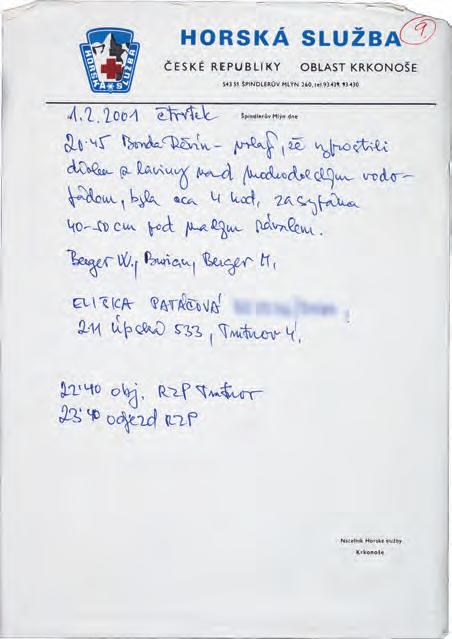 9.
HORSKÁ SLUŽBA
ČESKÉ REPUBLIKY OBLAST KRKONOŠE
543 51 ŠPINDLERŮV MLÝN 260, tel 93 439, 93 430
HORSKÁ SLUŽBA
Špindlerův Mlýn dne
1.2.2001 čtvrtek
20.45 Bonda Děvín – volaf, že vyprostili
dívku z laviny nad Modrodolským vodo-
pádem, byla cca 4 hod. zasypána
40-50 cm pod malým návalem.
Berger W., Burian, Berger M.
ELIŠKA PATÁČOVÁ
211 Úpská 533, Trutnov 4.
22:40 obj. RZP Trutnov
23:40 odjezd RZP
Náčelník Horské služby
Krkonoše